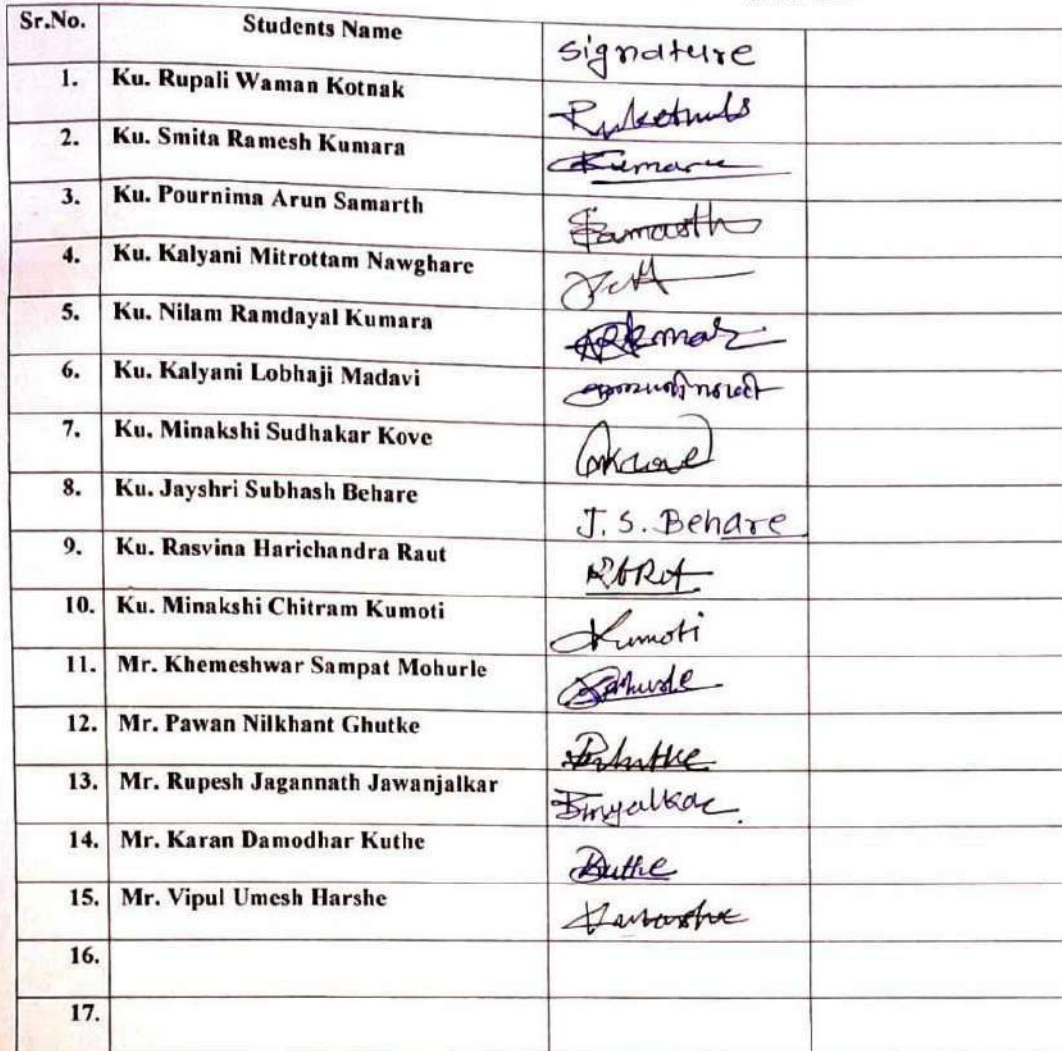 Sr.No. Students Name signature
1. Ku. Rupali Waman Kotnak
2. Ku. Smita Ramesh Kumara Kumara
3. Ku. Pournima Arun Samarth Samarth
4. Ku. Kalyani Mitrottam Nawghare
5. Ku. Nilam Ramdayal Kumara
6. Ku. Kalyani Lobhaji Madavi
7. Ku. Minakshi Sudhakar Kove
8. Ku. Jayshri Subhash Behare J. S. Behare
9. Ku. Rasvina Harichandra Raut
10. Ku. Minakshi Chitram Kumoti Kumoti
11. Mr. Khemeshwar Sampat Mohurle
12. Mr. Pawan Nilkhant Ghutke
13. Mr. Rupesh Jagannath Jawanjalkar
14. Mr. Karan Damodhar Kuthe Kuthe
15. Mr. Vipul Umesh Harshe
16.
17.